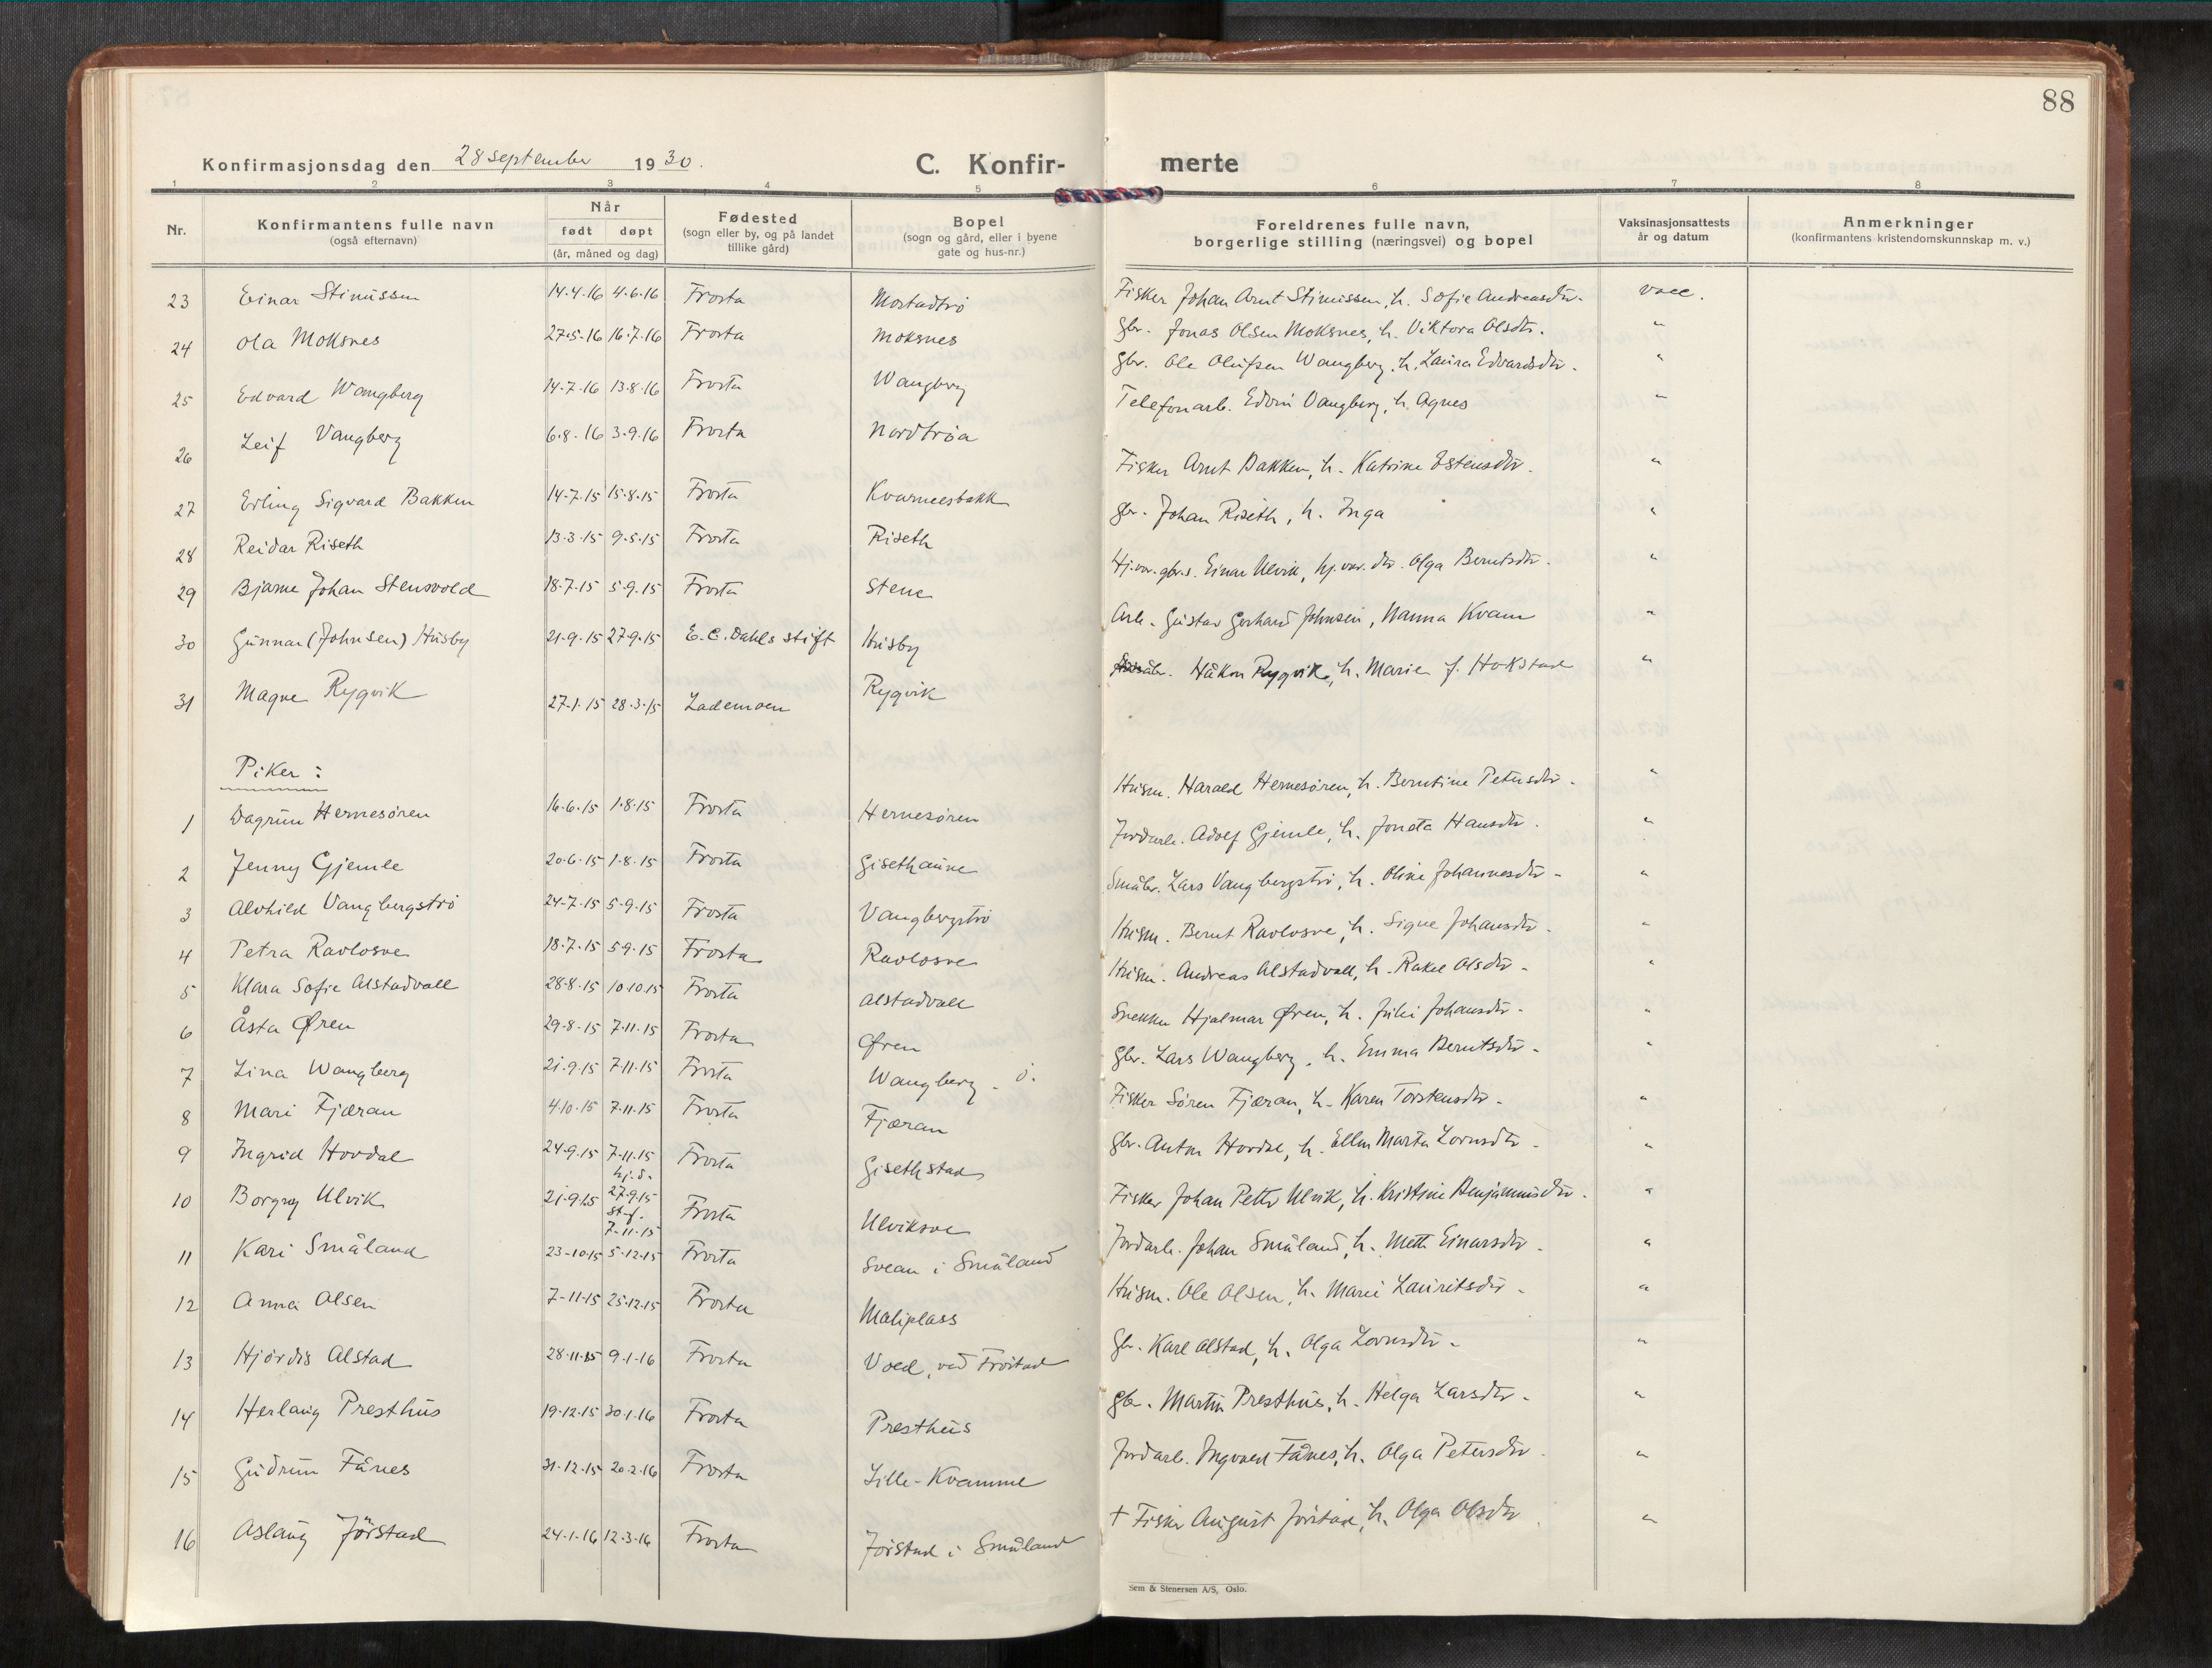 88
Konfirmasjonsdag den 28 september 1930.
C. Konfirmerte
1 2 3 4 5 6 7 8
Nr.
Konfirmantens fulle navn
(også efternavn)
Når
født døpt
(år, måned og dag)
Fødested
(sogn eller by, og på landet
tillike gård)
Bopel
(sogn og gård, eller i byene
gate og hus-nr.)
Foreldrenes fulle navn,
borgerlige stilling (næringsvei) og bopel
Vaksinasjonsattests
år og datum
Anmerkninger
(konfirmantens kristendomskunnskap m. v.)
23 Einar Stinussen 14.4.16 4.6.16 Frosta Mostadtrø Fisker Johan Arnt Stinussen, h. Sofie Andreasdtr. vacc.
24 Ola Moksnes 27.5.16 16.7.16 Frosta Moksnes gbr. Jonas Olsen Moksnes, h. Viktora Olsdtr. "
25 Edvard Wangberg 14.7.16 13.8.16 Frosta Wangberg gbr. Ole Olufsen Wangberg, h. Laura Edvardsdtr. "
26 Leif Vangberg 6.8.16 3.9.16 Frosta Nordtrøa Telefonarb. Edvin Vangberg, h. Agnes "
27 Erling Sigvard Bakken 14.7.15 15.8.15 Frosta Fisker Arnt Bakken, h. Katrine Estensdtr. "
28 Reidar Riseth 13.3.15 9.5.15 Frosta Riseth gbr. Johan Riseth, h. Inga "
29 Bjarne Johan Stensvold 18.7.15 5.9.15 Frosta Stene Hj.vær. gbr.s. Einar Ulvik, hj.vær. dtr. Olga Berntsdtr. "
30 Gunnar (Johnsen) Husby 21.9.15 27.9.15 E. C. Dahls stift Husby Arb. Gustav Gerhard Johnsen, Nanna Kvam "
31 Magne Rygvik 27.1.15 28.3.15 Lademoen Rygvik Håkon Rygvik, h. Marie f. Hokstad "
Piker:
1 Dagrun Hernesøren 16.6.15 1.8.15 Frosta Hernesøren Husm. Harald Hernesøren, h. Berntine Petersdtr. "
2 Jenny Gjemle 20.6.15 1.8.15 Frosta Gisethaune Jordarb. Adolf Gjemle, h. Jonata Hansdtr. "
3 Alvhild Vangbergstrø 24.7.15 5.9.15 Frosta Vangbergstrø Småbr. Lars Vangbergstrø, h. Oline Johannesdtr. "
4 Petra Ravlosve 18.7.15 5.9.15 Frosta Ravlosve Husm. Bernt Ravlosve, h. Signe Johansdtr. "
5 Klara Sofie Alstadvall 28.8.15 10.10.15 Frosta Alstadvall Husm. Andreas Alstadvall, h. Rakel Olsdtr. "
6 Åsta Øren 29.8.15 7.11.15 Frosta Øren Snekker Hjalmar Øren, h. Juli Johansdtr. "
7 Lina Wangberg 21.9.15 7.11.15 Frosta Wangberg. ø. Gbr. Lars Wangberg, h. Emma Berntsdtr. "
8 Mari Fjæran 4.10.15 7.11.15 Frosta Fjæran Fisker Søren Fjæran, h. Karen Torstensdtr. "
9 Ingrid Hovdal 24.9.15 7.11.15 Frosta Gisethstad gbr. Anton Hovdal, h. Ellen Marta Lornsdtr. "
10 Borgny Ulvik 21.9.15 hj.d. 27.9.15 st.f. 7.11.15 Frosta Ulviksve Fisker Johan Petter Ulvik, h. Kristine Benjaminsdtr. "
11 Kari Småland 23.10.15 5.12.15 Frosta Svean i Småland Jordarb. Johan Småland, h. Mette Einarsdtr. "
12 Anna Olsen 7-11-15 25.12.15 Frosta Maliplass Husm. Ole Olsen, h. Marie Lauritsdtr. "
13 Hjørdis Alstad 28.11.15 9.1.16 Frosta Voll, ved Frøstad Gbr. Karl Alstad, h. Olga Lornsdtr. "
14 Herlaug Presthus 19.12.15 30.1.16 Frosta Presthus Gbr. Martin Presthus, h. Helga Larsdtr. "
15 Gudrun Fånes 31.12.15 20.2.16 Frosta Lille-Kvamme Jordarb. Ingvald Fånes, h. Olga Petersdtr. "
16 Aslaug Jørstad 24.1.16 12.3.16 Frosta Jørstad i Småland † Fisker August Jørstad, h. Olga Olsdtr. "
Sem & Stenersen A/S, Oslo.